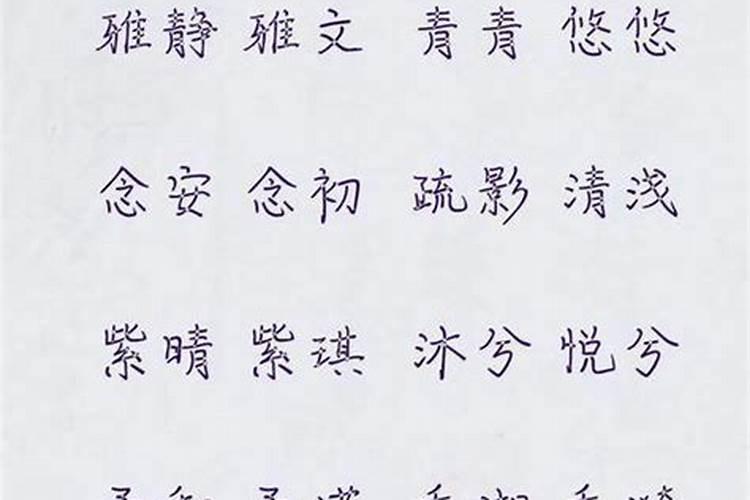 雅静 雅文 青青 悠悠
念安 念初 疏影 清浅
紫晴 紫琪 沐兮 悦兮